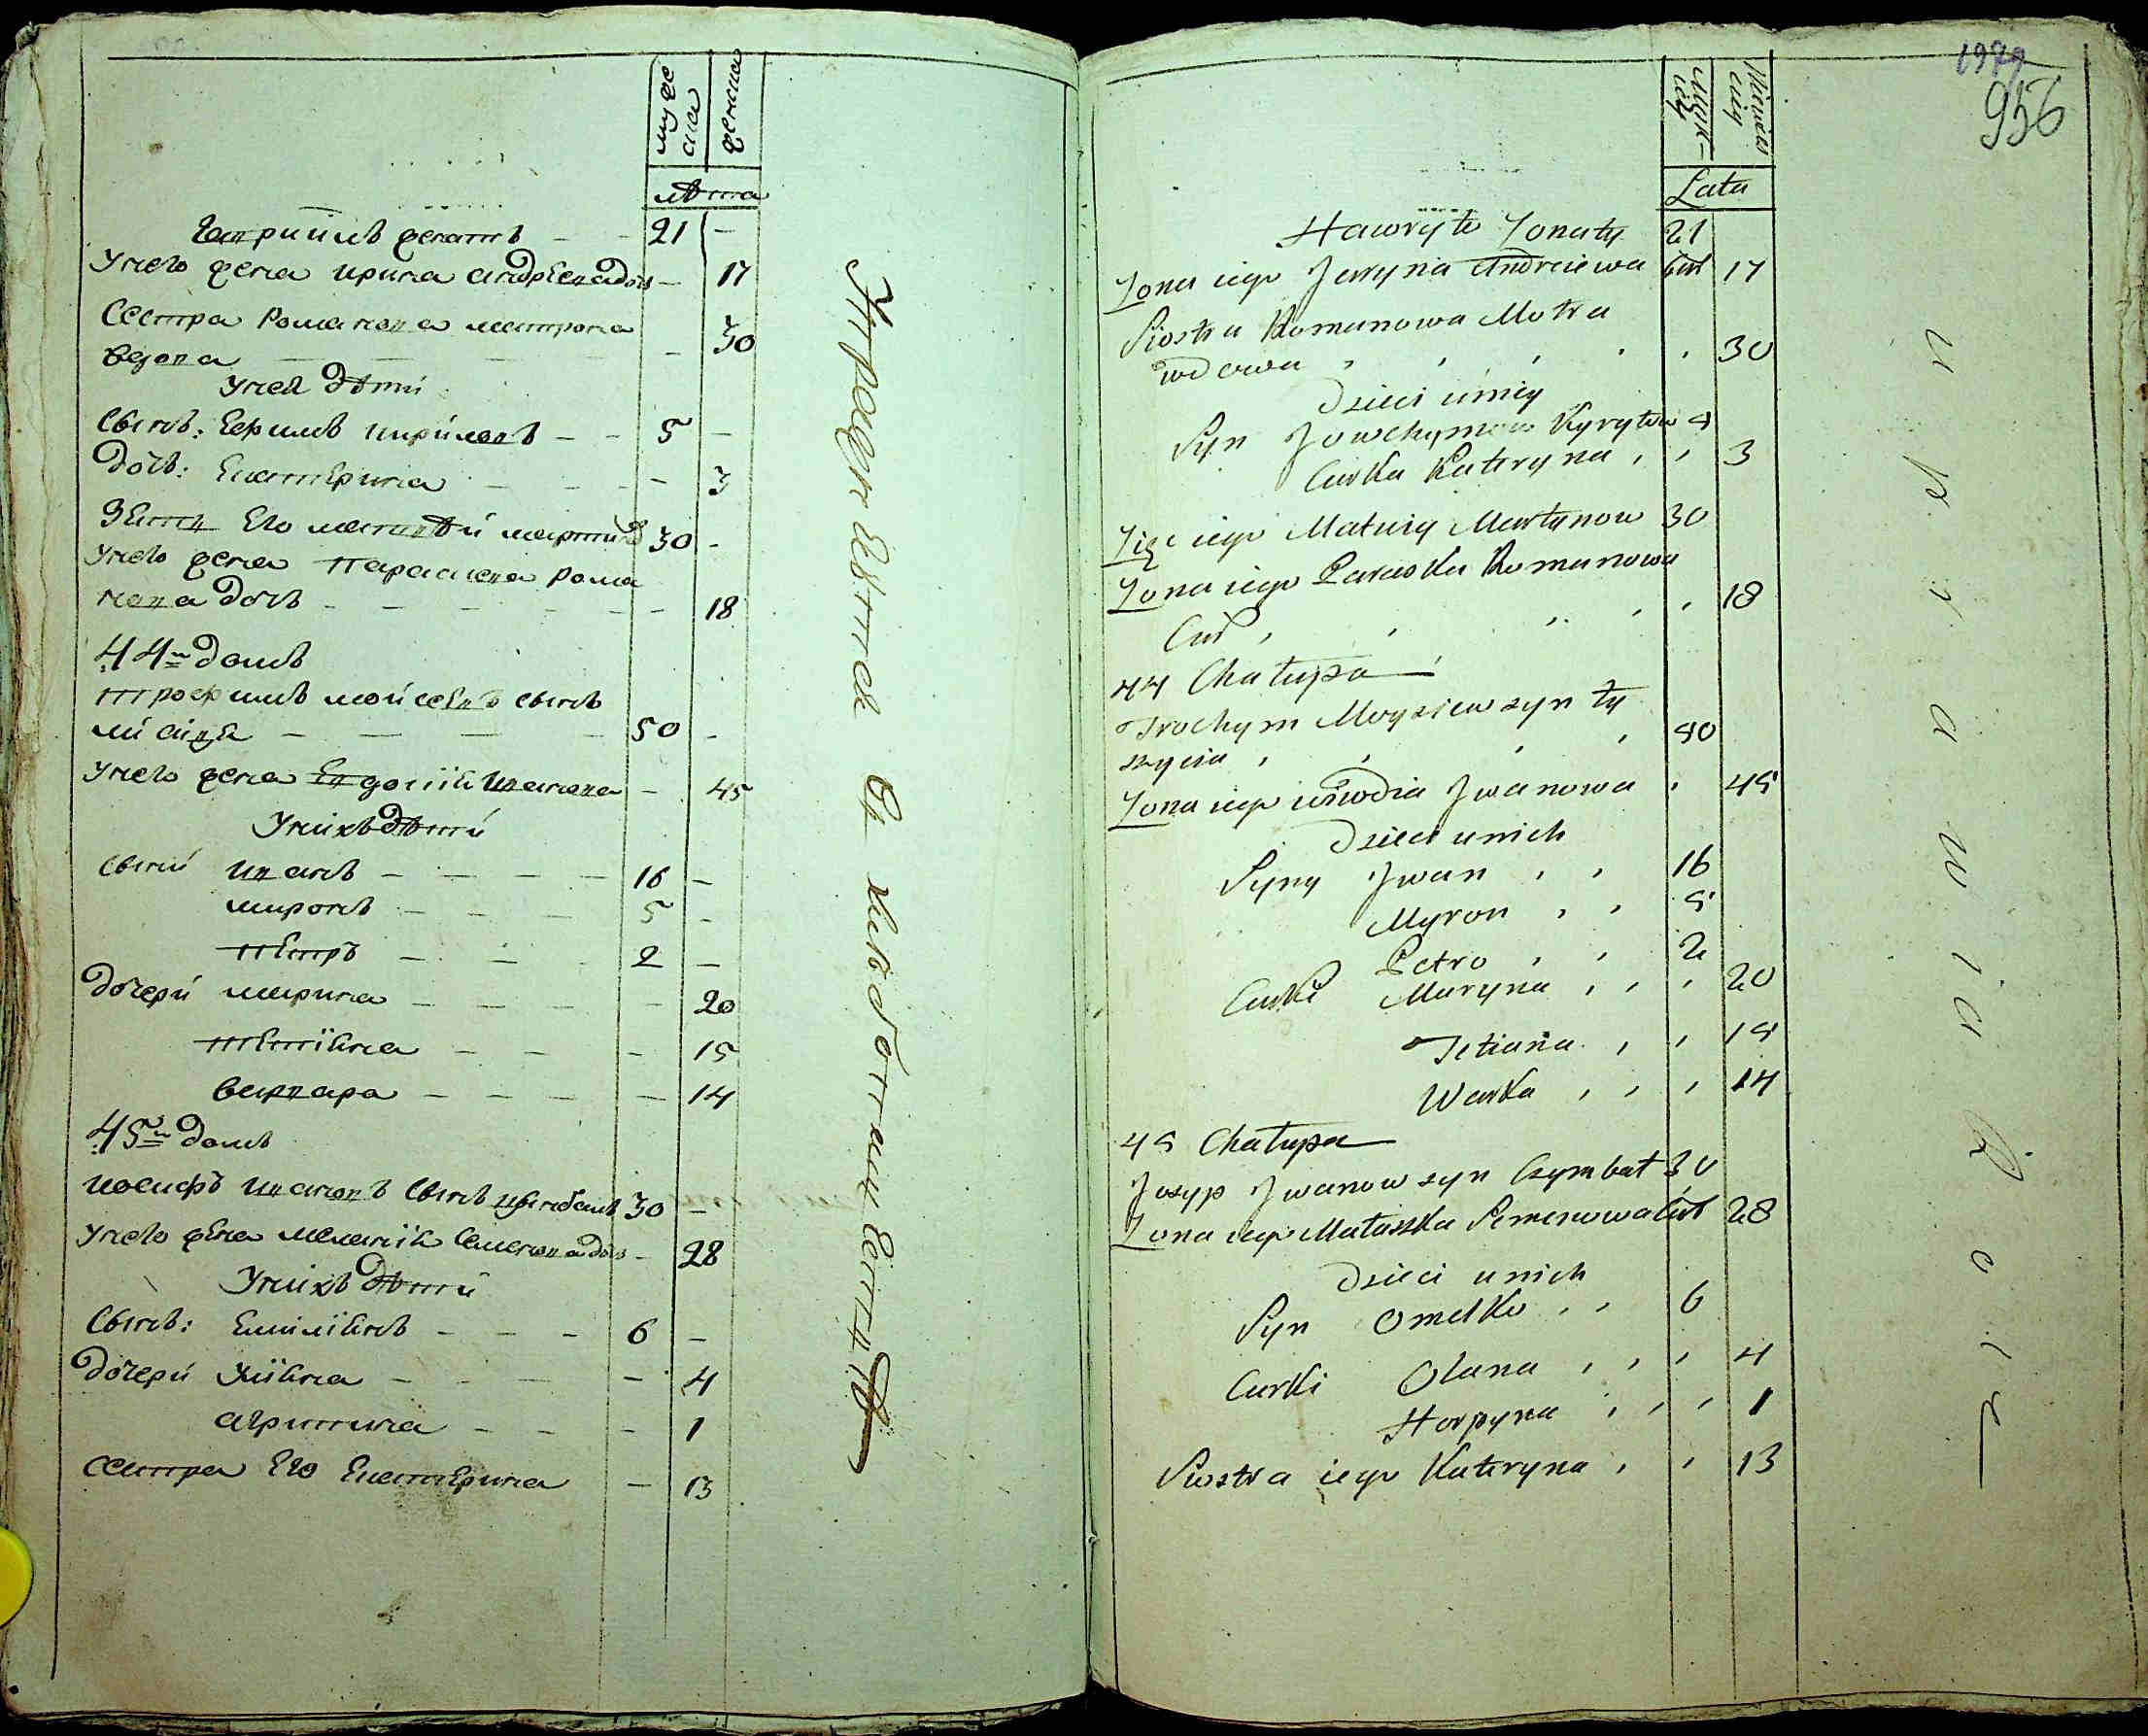 мужеска
женска
лѣта
Гавриилъ женатъ — — 21 —
Унего жена ирина андрѣева дочь — 17
Сестра Романова матрона
вдова — — — — 30
Унея дѣти
Сынъ: Ефимъ кириловъ — — 5 —
дочь: Екатерина — — — 3
Зять Его матвѣй мартиновъ 30 -
Унего жена Параскева Рома
нова дочь — — — — — 18
44й домъ
трофимъ мойсеевъ сынъ
50 -
Унего жена Евдокия Иванова — 45
Унихъ дѣти
Сыни иванъ — — — — 16 —
миронъ — — — 5 -
петръ — — — 2 —
дочери марина — — — — 20
тетияна — — — 15
варвара — — — — 14
45й домъ
иосифъ ивановъ сынъ цимбалъ 30 —
Унего жена мелания Семенова дочь — 28
Унихъ дѣти
Сынъ: Емилиянъ — — — 6 —
дочери улияна — — — — 4
агрипина — — — 1
Сестра Его Екатерина — 13
Упражняется въ хлебопашествѣ
1979
956
Lata
Hawryło Żonaty 21
Żona iego Jaryna Andreiewa Cur 17
Siostra Romanowa Motra
wdowa , , , , , 30
Dzieci uniey
Syn Jowchym Kyryłow 5
Curka Kateryna , , 3
Zięć iego Matwiy Martynow 30
Żona iego Paraska Romanowa
Cur , , , , , 18
44 Chałupa
Trochym Moysiew syn
50
Żona iego iewdia Jwanowa , 45
Dzieci unich
Syny Jwan , , 16
Myron , , 5
Petro , , 2
Curki Maryna , , , 20
Tetiana , , 15
Warka , , , 14
45 Chałupa
Josyp Jwanow syn Cymbał 30
Żona iego Małaszka Semenowa Cur 28
Dzieci unich
Syn Omelko , , 6
Curki Olana , , , 4
Horpyna , , , 1
Siostra iego Kateryna , , 13
uprawia Rolę